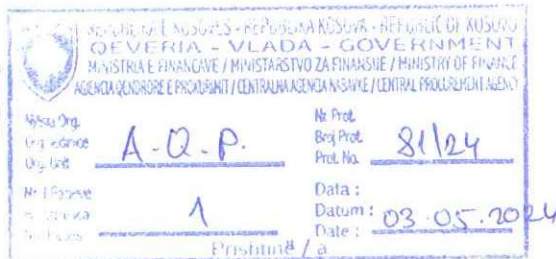 REPUBLIKA E KOSOVËS - REPUBLIKA KOSOVA - REPUBLIC OF KOSOVO
QEVERIA - VLADA - GOVERNMENT
MINISTRIA E FINANCAVE / MINISTARSTVO ZA FINANSIJE / MINISTRY OF FINANCE
AGJENCIA QENDRORE E PROKURIMIT / CENTRALNA AGENCIA NABAVKE / CENTRAL PROCUREMENT AGENCY
Org. Unit
A-Q.P.
Nr. Prot.
Broj Prot.
Prot. No.
81/24
1
Data :
Datum :
Date :
03.05.2024
Prishtinë / a